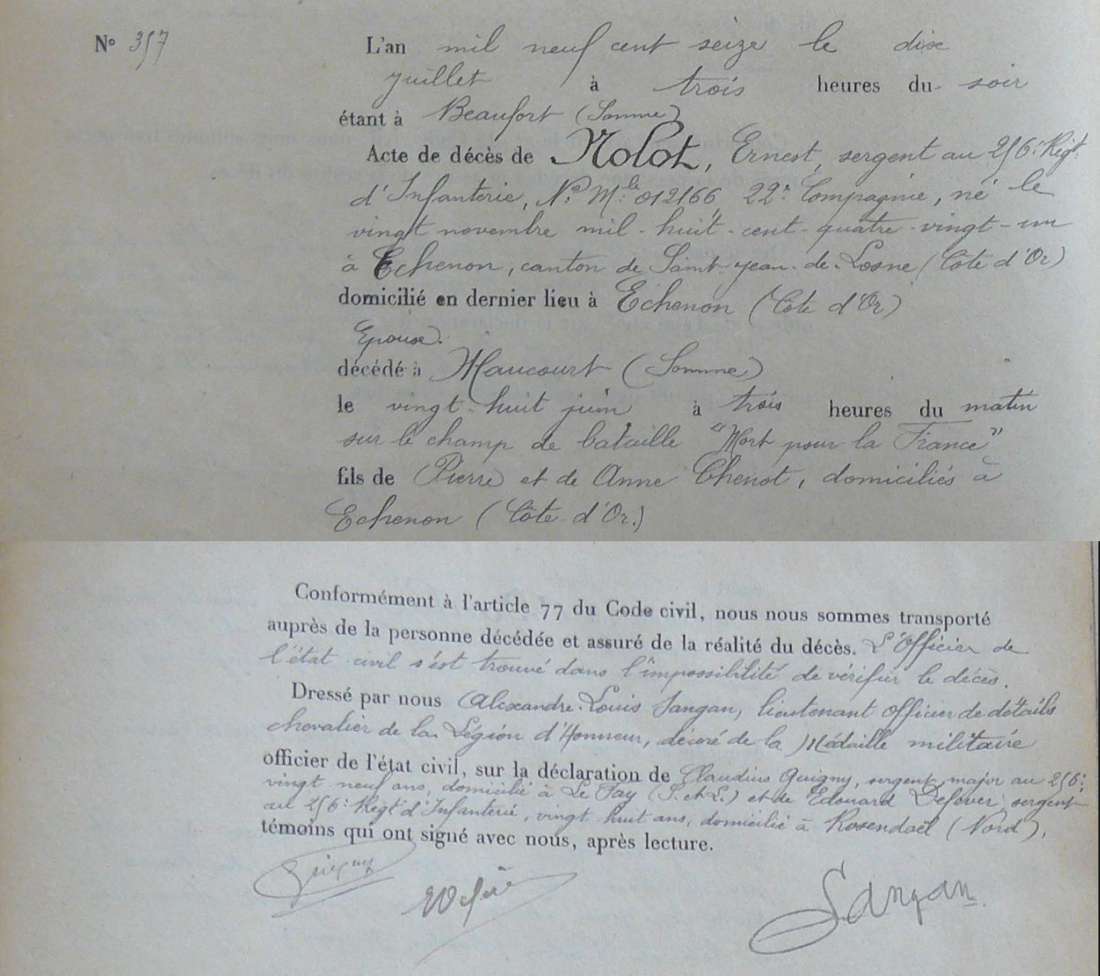 N° 357
L'an mil neuf cent seize le dix
juillet à trois heures du soir
étant à Beaufort (Somme)
Acte de décès de Molot, Ernest, sergent au 256e Régt
d'Infanterie, No Mle 012166, 22e Compagnie, né le
vingt novembre mil-huit-cent-quatre-vingt-un
à Echenon, canton de Saint-Jean-de-Losne (Côte d'Or)
domicilié en dernier lieu à Echenon (Côte d'Or)
Epouse.
décédé à Maucourt (Somme)
le vingt-huit juin à trois heures du matin
sur le champ de bataille "Mort pour la France"
fils de Pierre et de Anne Chenot, domiciliés à
Echenon (Côte-d'Or.)
Conformément à l'article 77 du Code civil, nous nous sommes transporté
auprès de la personne décédée et assuré de la réalité du décès. L'Officier de
l'état civil s'est trouvé dans l'impossibilité de vérifier le décès.
Dressé par nous Alexandre-Louis Sangan, lieutenant officier de détails
chevalier de la Légion d'Honneur, décoré de la Médaille militaire
officier de l'état civil, sur la déclaration de Claudius Guigny, sergent major au 256e,
vingt neuf ans, domicilié à Le Fay (S. et L.) et de Edouard Defever, sergent
au 256e Régt d'Infanterie, vingt huit ans, domicilié à Rosendaël (Nord),
témoins qui ont signé avec nous, après lecture.
Guigny Sangan